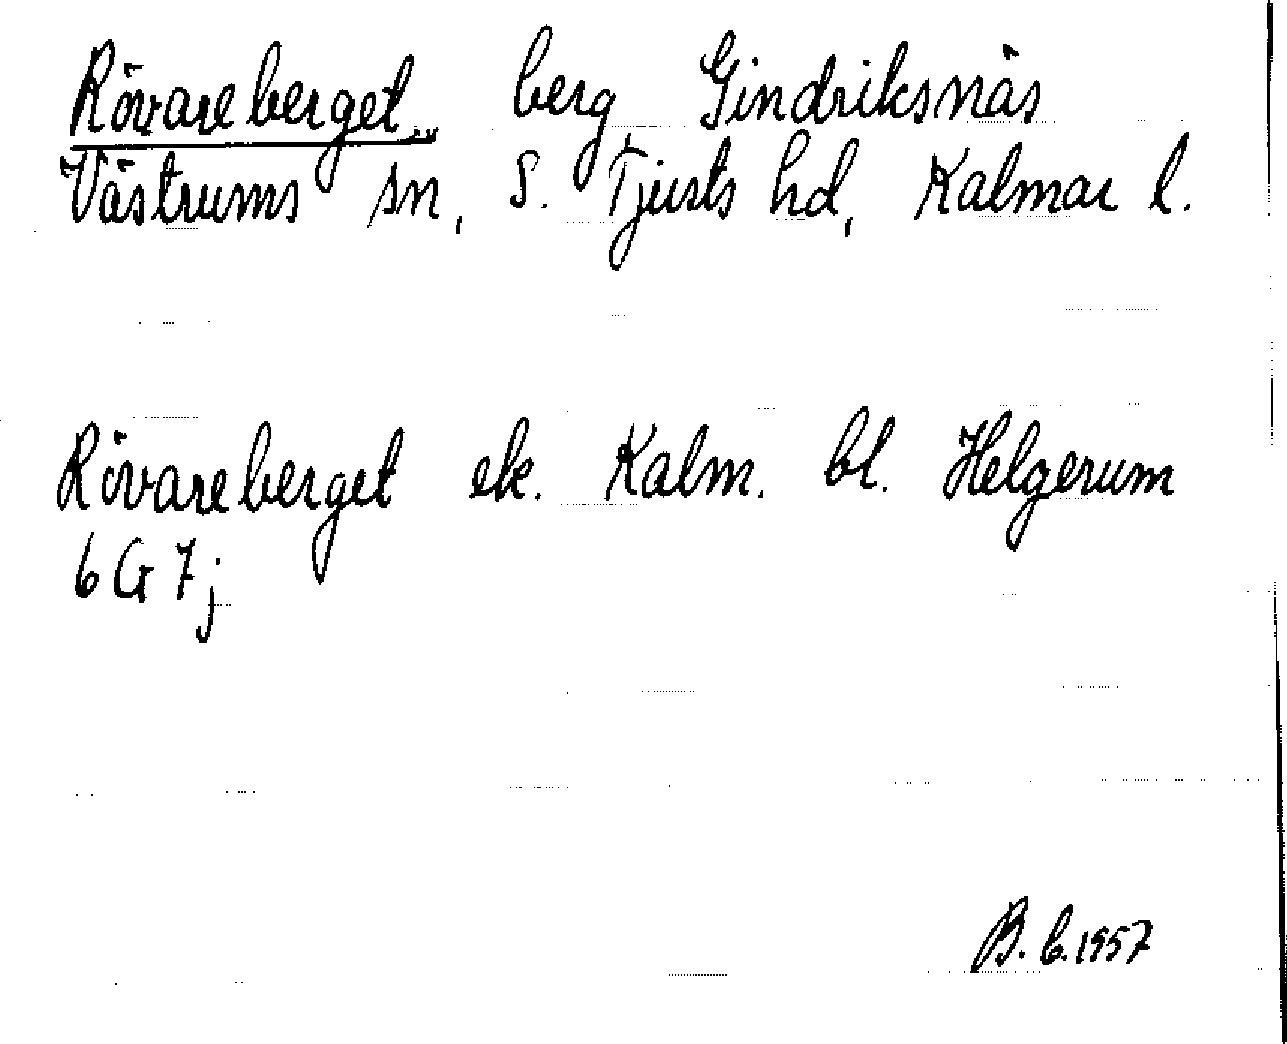 Rövareberget berg Gindriksnäs
Västrums sn, S. Tjusts hd, Kalmar l.
Rövareberget ek. Kalm. bl. Helgerum
6 G 7 j
B. C. 1957